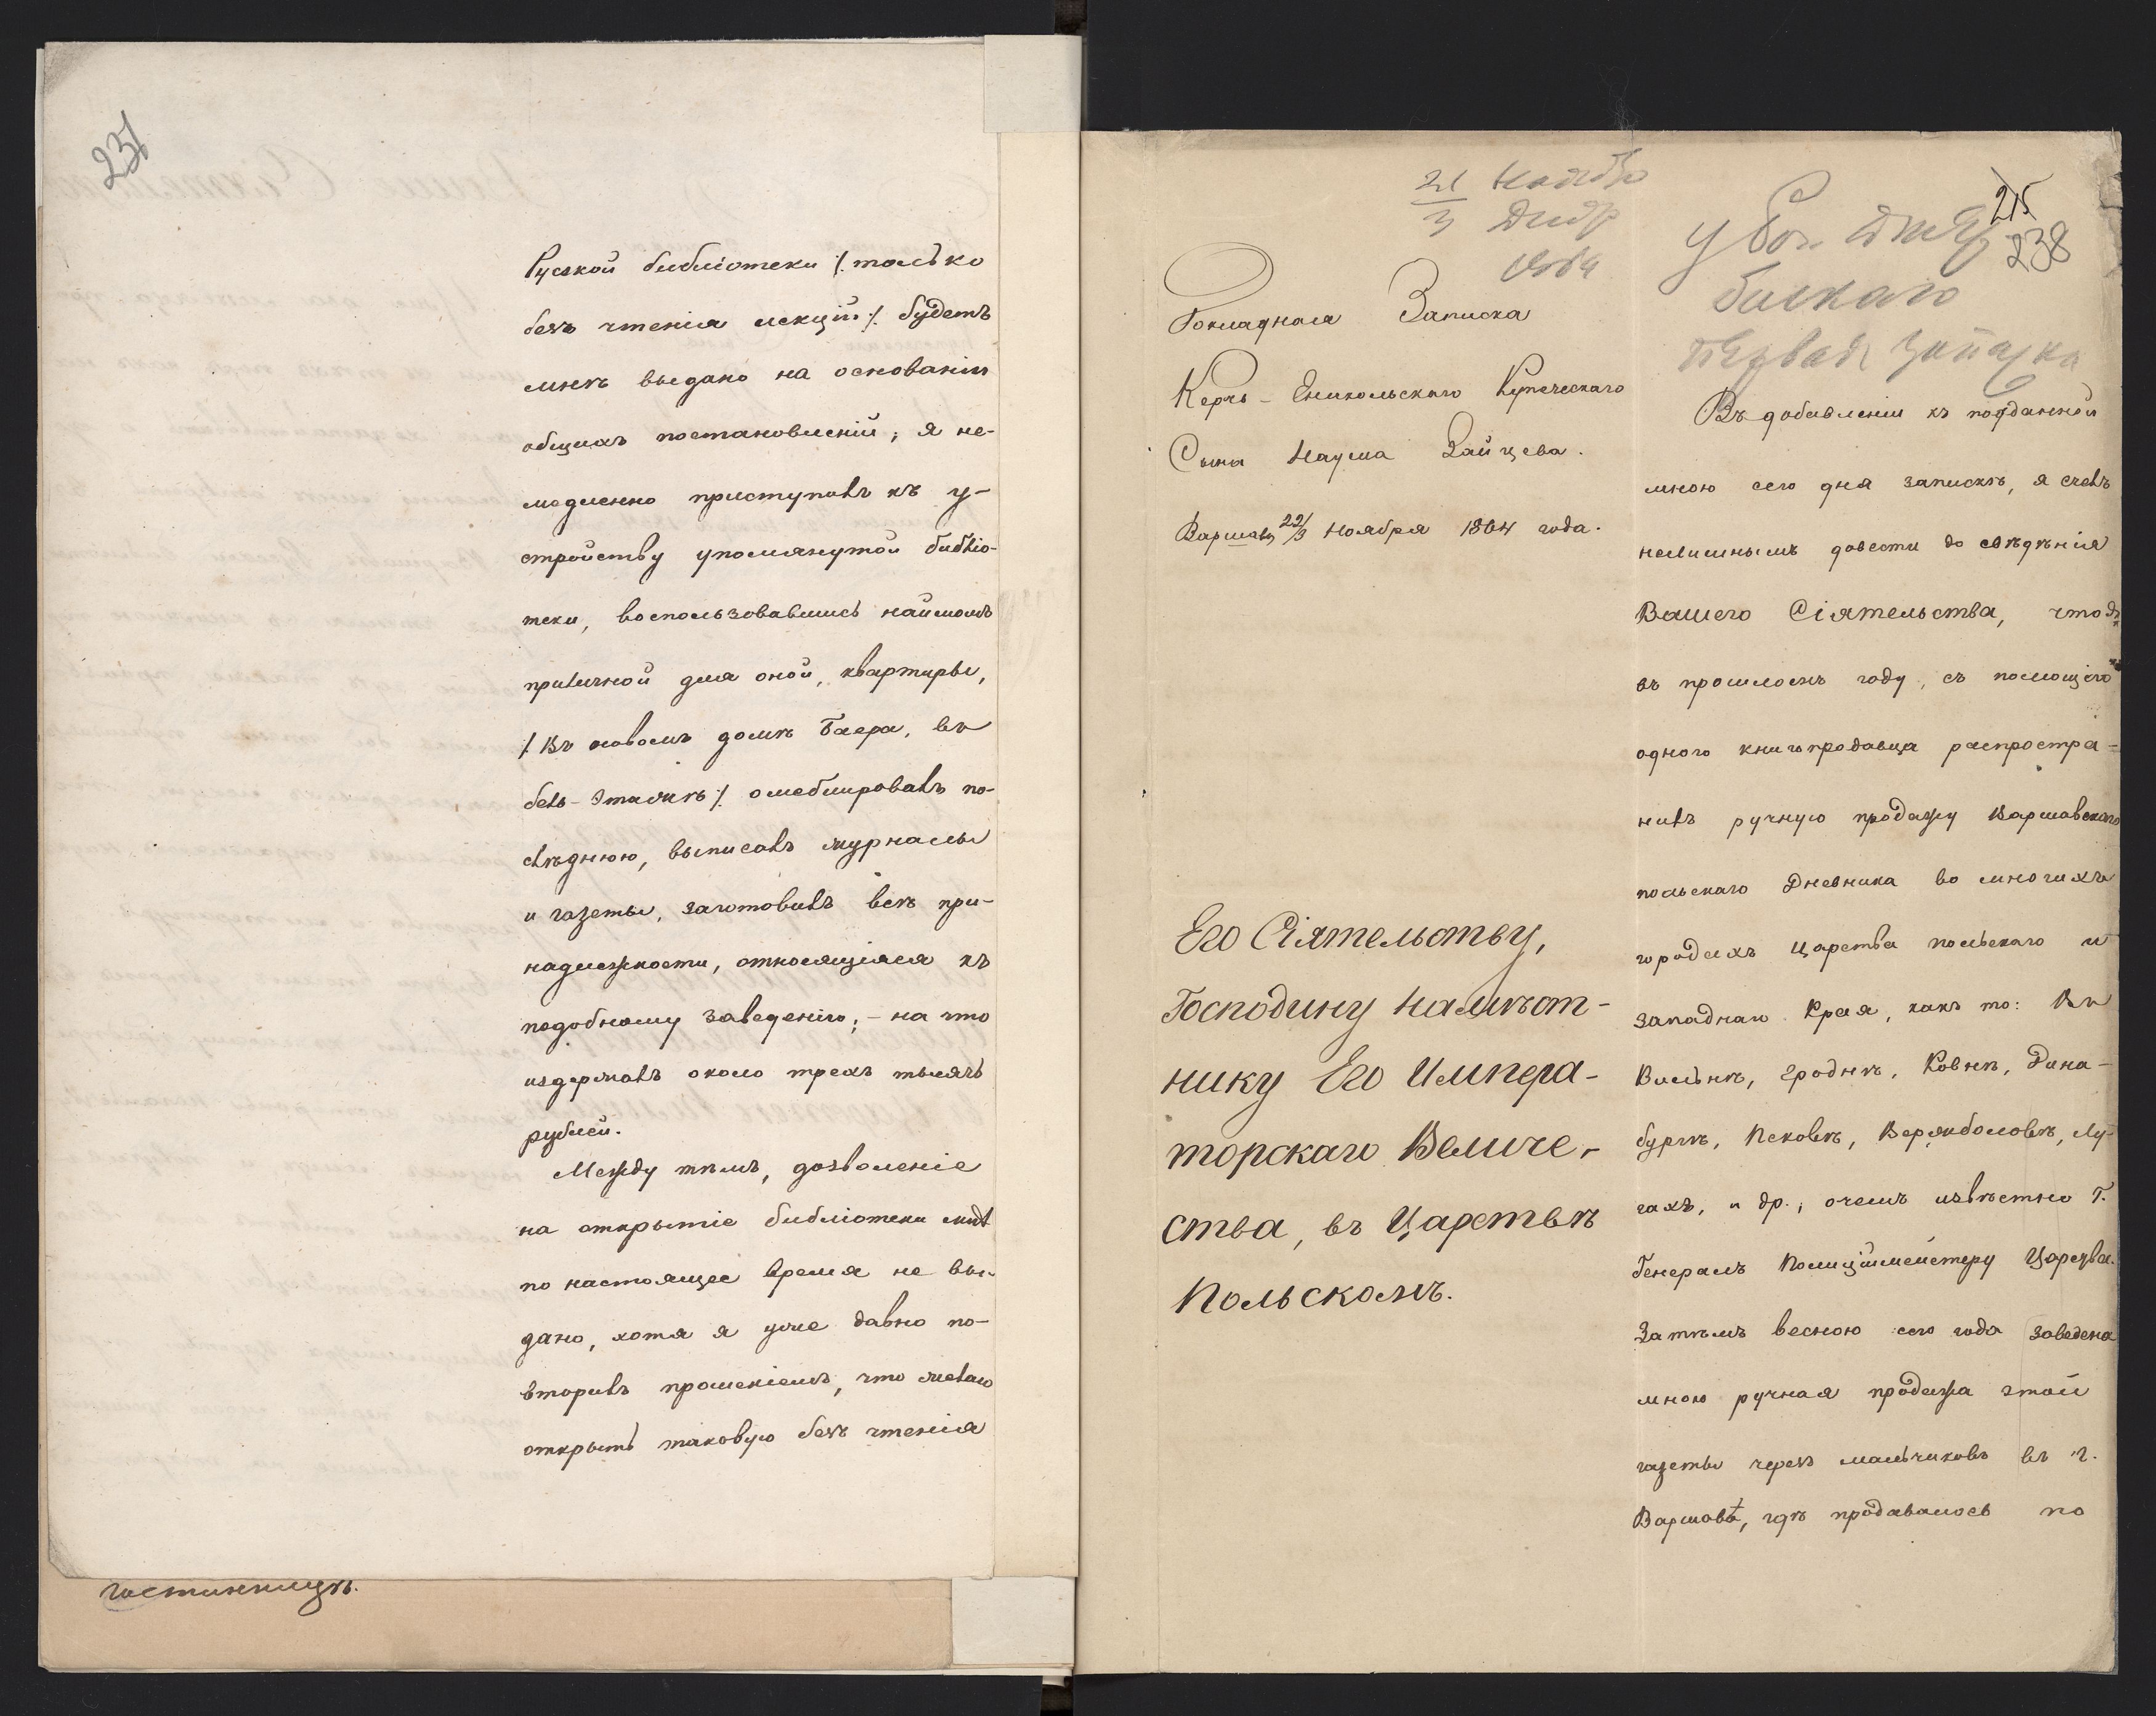 237
Руской библіотеки /. только
безъ чтенія лекцій ./. будетъ
мнѣ выдано на основаніи
общихъ постановленій; я не-
медленно приступилъ къ у-
стройству упомянутой библіо-
теки, воспользовавшись наймомъ
приличной для оной, квартиры,
/. въ новомъ домѣ Баера, въ
бель-этажѣ ./. омеблировалъ по-
слѣднюю, выписалъ журналы
и газеты, заготовилъ всѣ при-
надлежности, относящіяся къ
подобному заведенію; – на что
издержалъ около трехъ тысячъ
рублей.
Между тѣмъ, дозволеніе
на открытіе библіотеки мнѣ
по настоящее время не вы-
дано, хотя я уже давно по-
вторилъ прошеніемъ, что желаю
открыть таковую безъ чтенія
гостинницѣ.
21 Ноября
3 Дкбр
1864
215
238
первая записка
Докладная Записка
Керчь-Еникольскаго Купеческаго
Сына Наума Зайцева.
Варшава 22/3 Ноября 1864 года.
Его Сіятельству,
Господину Намѣст-
нику Его Импера-
торскаго Величе-
ства, въ Царствѣ
Польскомъ.
Въ добавленіи къ поданной
мною сего дня запискѣ, я счелъ
нелишнымъ довести до свѣдѣнія
Вашего Сіятельства, что я
въ прошломъ году, съ помощію
одного книгопродавца распростра-
нилъ ручную продажу Варшавскаго
польскаго Дневника во многихъ
городахъ Царства польскаго и
западнаго Края, какъ то: Въ
Вильнѣ, Гроднѣ, Ковнѣ, Дина-
бургѣ, Псковѣ, Вержболовѣ, Лу-
гахъ, и др.; о чемъ извѣстно Г.
Генералъ Полиціймейстеру Царства.
Затѣмъ весною сего года заведена
мною ручная продажа этой
газеты черезъ мальчиковъ въ г.
Варшавѣ, гдѣ продавалось по